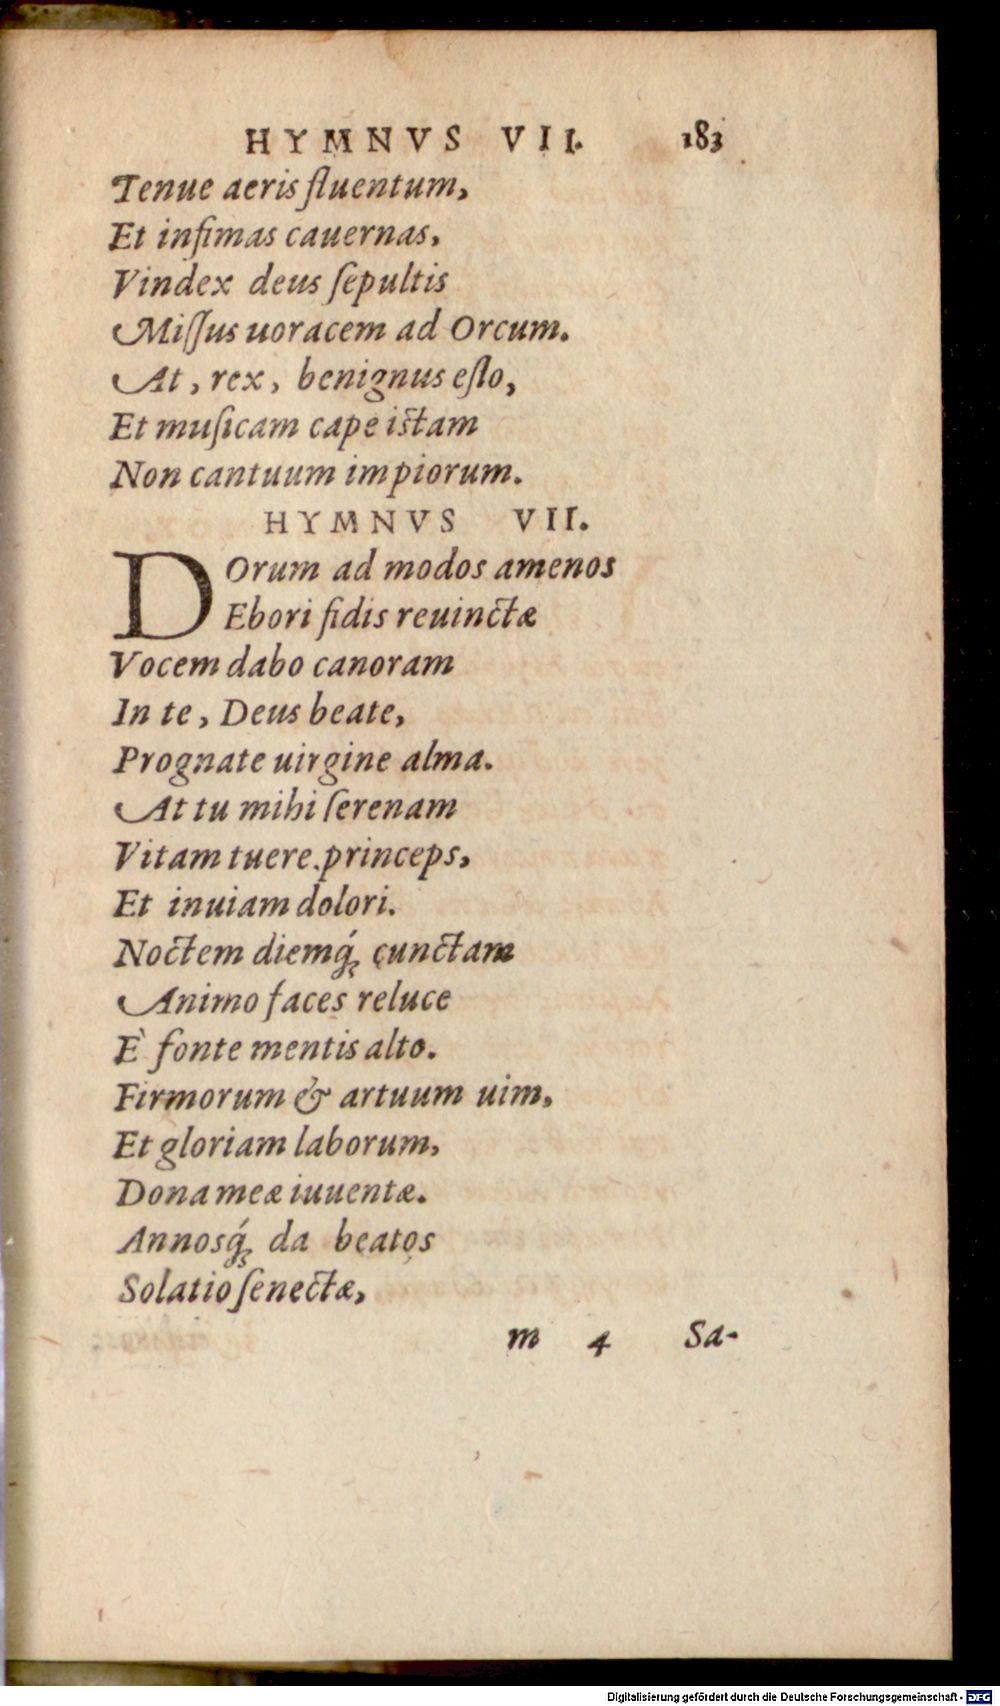 HYMNVS VII. 183
Tenue aeris fluentum,
Et infimas cauernas,
Vindex deus ſepultis
Miſſus uoracem ad Orcum.
At, rex, benignus eſto,
Et muſicam cape istam
Non cantuum impiorum.
HYMNVS VII.
DOrum ad modos amenos
Ebori fidis reuinctæ
Vocem dabo canoram
In te, Deus beate,
Prognate uirgine alma.
At tu mihi ſerenam
Vitam tuere princeps,
Et inuiam dolori.
Noctem diemq́; cunctam
Animo faces reluce
È fonte mentis alto.
Firmorum & artuum uim,
Et gloriam laborum,
Dona meæ iuuentæ.
Annosq́; da beatos
Solatio ſenectæ,
m 4 Sa-
Digitalisierung gefördert durch die Deutsche Forschungsgemeinschaft - DFG